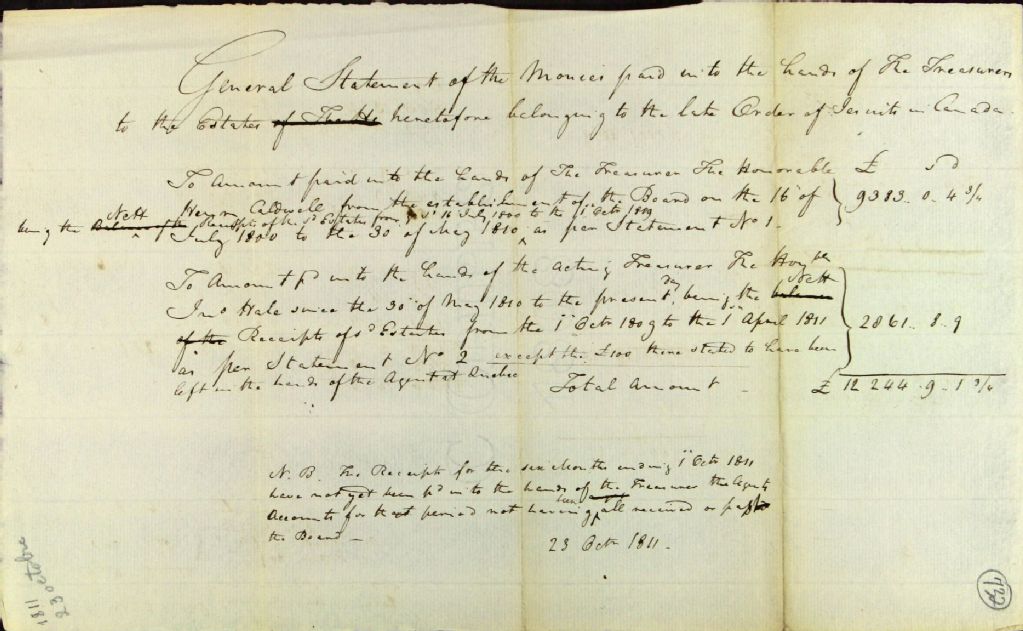 General Statement of the Monies paid into the hands of The Treasurers
to the Estates of The He heretofore belonging to the late Order of Jesuits in Canada.
£ S D
To Amount paid into the hands of The Treasurer The Honorable
Henry Caldwell from the establishment of the Board on the 16th of 9383 . 0 . 4 3/4
being the Balance of the Nett Receipts of the sd Estates from the sd 16 July 1800 to the 1st Octr 1809
July 1800 to the 30th of May 1810 ^ as per Statement No 1.
To Amount pd into the hands of the acting Treasurer The Honble
Jno Hale since the 30th of May 1810 to the present day, being the balance Nett
of the Receipts of sd Estates from the 1st Octr 1809 to the 1st April 1811 2861 . 8 . 9
as per Statement No 2 except the £100 there stated to have been
left in the hands of the Agent at Quebec
Total Amount - £ 12 244 . 9 . 1 3/4
N.B. The Receipts for the six Months ending 1st Octr 1811
have not yet been pd into the hands of the Treasurer the Agents
Accounts for that period not having been all received or past
the Board —
23 Octr 1811.
1811
23 octobre